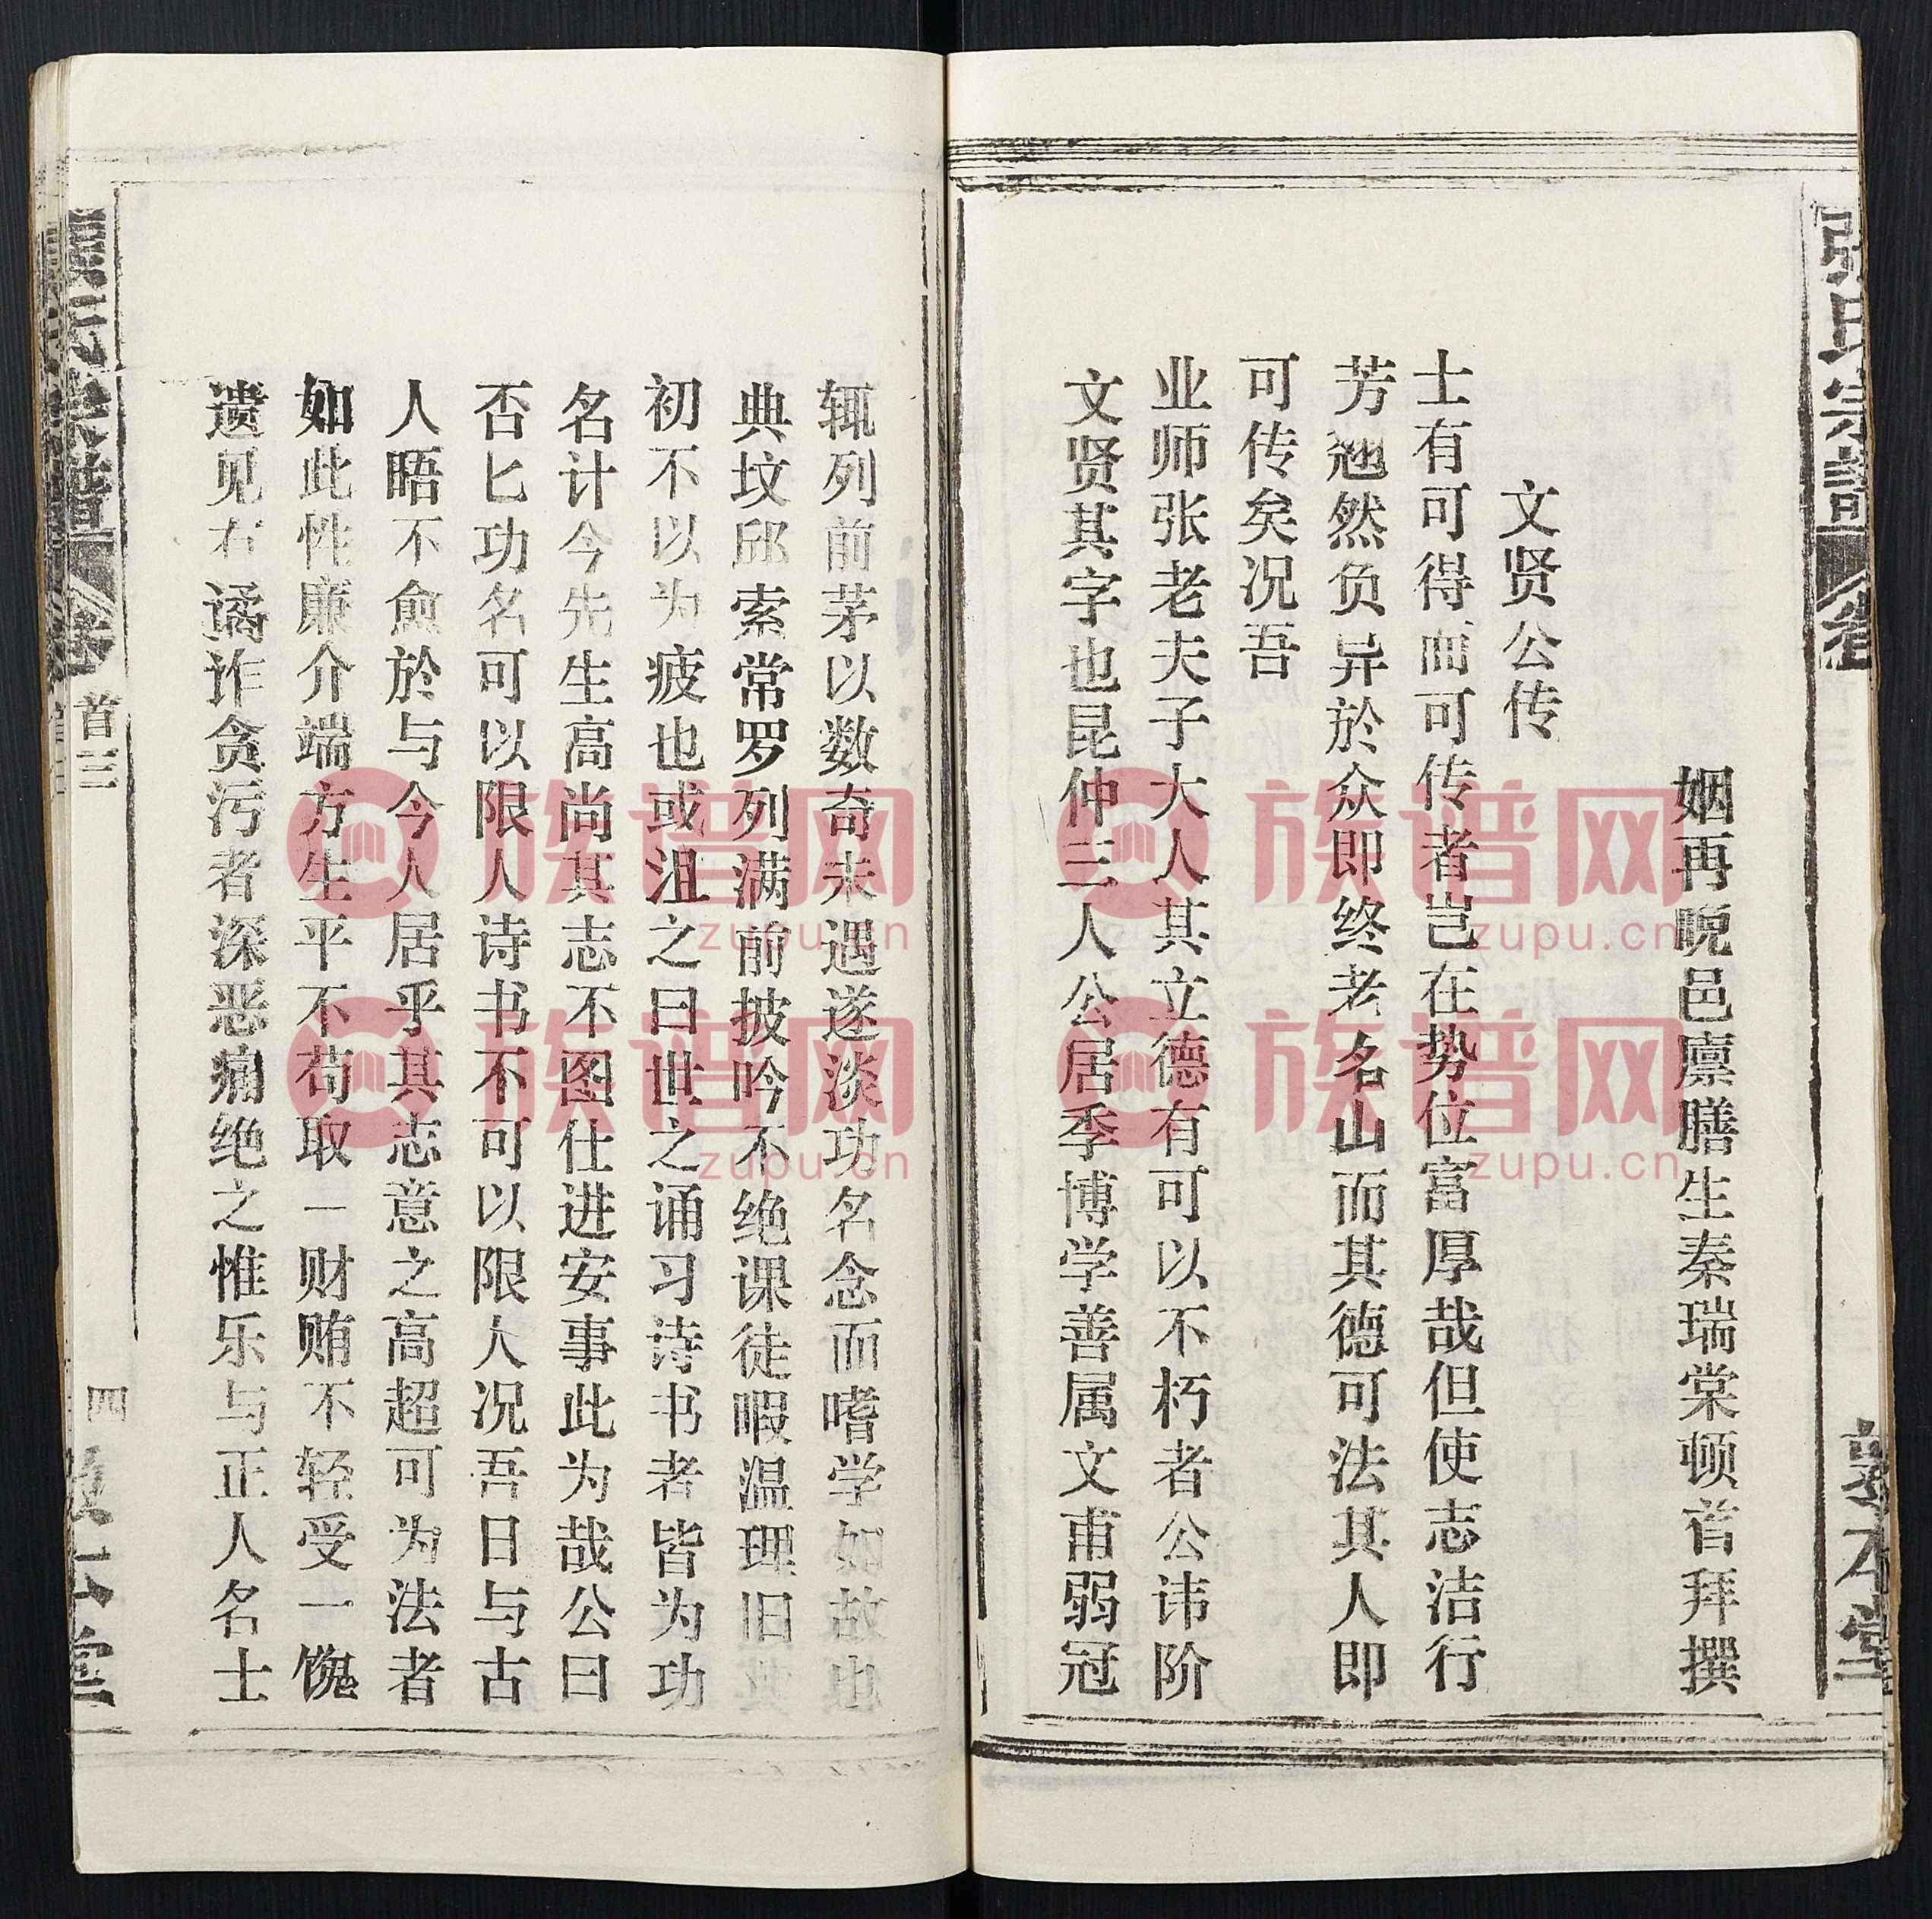 张氏宗谱 卷
敦本堂
姻再晚邑廪膳生秦瑞棠顿首拜撰
文贤公传
士有可得而可传者岂在势位富厚哉但使志洁行
芳翘然负异於众即终老名山而其德可法其人即
可传矣况吾
业师张老夫子大人其立德有可以不朽者公讳阶
文贤其字也昆仲三人公居季博学善属文甫弱冠
辄列前茅以数奇未遇遂淡功名念而嗜学如故也
典坟邱索常罗列满前披吟不绝课徒暇温理旧其
初不以为疲也或沮之曰世之诵习诗书者皆为功
名计今先生高尚其志不图仕进安事此为哉公曰
否匕功名可以限人诗书不可以限人况吾日与古
人晤不愈於与今人居乎其志意之高超可为法者
如此性廉介端方生平不苟取一财贿不轻受一馈
遗见有谲诈贪污者深恶痛绝之惟乐与正人名士
首三
四
堂
族谱网
zupu.cn
族谱网
zupu.cn
族谱网
zupu.cn
族谱网
zupu.cn